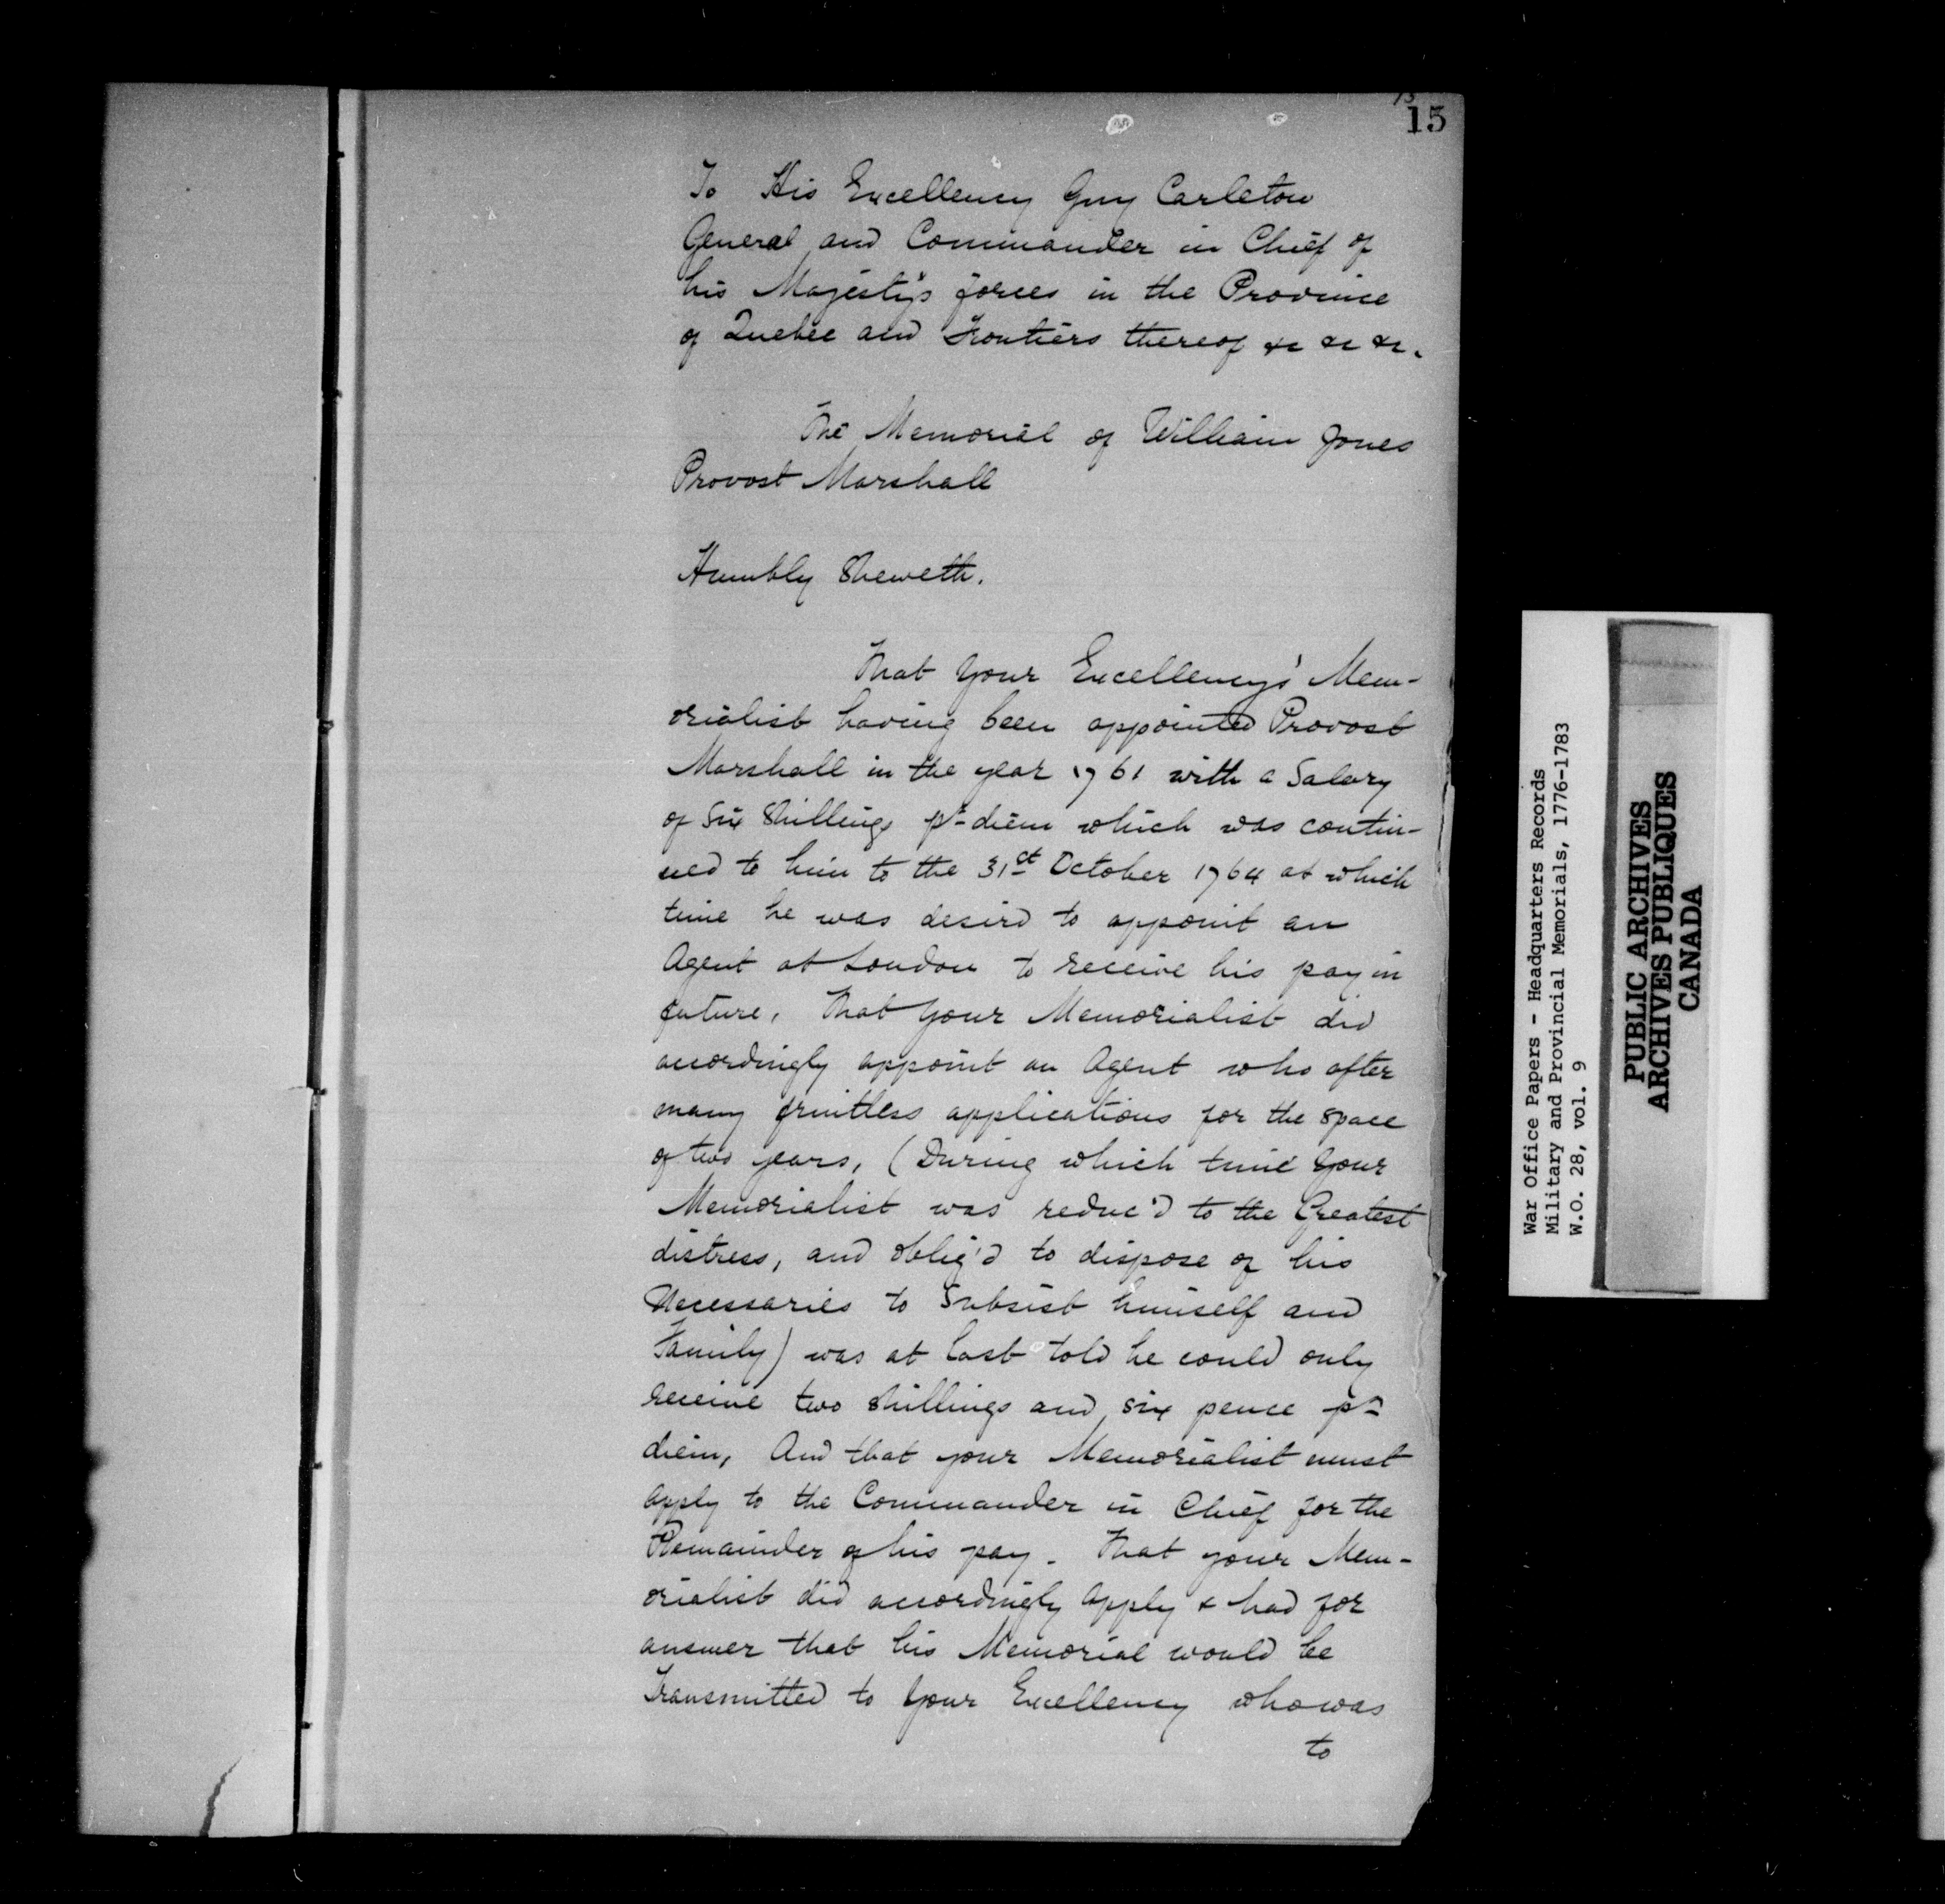 15
15
To His Excellency Guy Carleton
General and Commander in Chief of
his Majesty's forces in the Province
of Quebec and Frontiers thereof &c &c &c.
The Memorial of William Jones
Provost Marshall
Humbly Sheweth.
That Your Excellency's Mem-
orialist having been appointed Provost
Marshall in the year 1761 with a Salary
of Six Shillings pr diem which was contin-
ued to him to the 31st October 1764 at which
time he was desird to appoint an
Agent at London to receive his pay in
future. That Your Memorialist did
accordingly appoint an Agent who after
many fruitless applications for the space
of two years, (During which time Your
Memorialist was reduc'd to the Greatest
distress, and oblig'd to dispose of his
Necessaries to Subsist himself and
Family) was at last told he could only
receive two shillings and six pence pr
diem, And that your Memorialist must
apply to the Commander in Chief for the
Remainder of his pay. That your Mem-
orialist did accordingly apply & had for
answer that his Memorial would be
Transmitted to Your Excellency who was
to
War Office Papers - Headquarters Records
Military and Provincial Memorials, 1776-1783
W.O. 28, vol. 9
PUBLIC ARCHIVES
ARCHIVES PUBLIQUES
CANADA